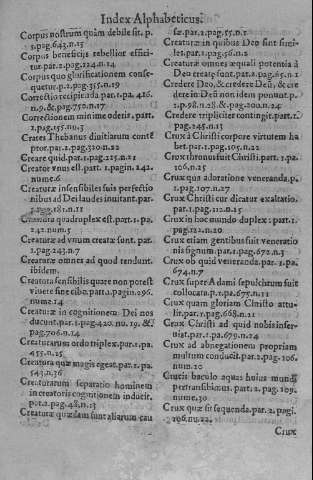 Index Alphabeticus.
Corpus nostrum quàm debile sit. p.
1.pag.643.n.15
Corpus beneficijs rebellior effici-
tur.par.2.pag.224.n.14
Corpus quo glorificationem conse-
quetur.p.2.pag.355.n.19
Correctio recipiẽda par.1.pa.426.
n.9.&.pag.750.n.17
Correctionem minime oderit.part.
1.pag.155.nu.3
Crates Thebanus diuitiarum contẽ
ptor.par.2.pag.320.n.22
Creare quid.par.1.pag.225.n.21
Creator vnus est.part.1.pagin.242.
nume.6
Creaturæ insensibiles suis perfectio
nibus ad Dei laudes inuitant.par.
1.pag.181.n.11
Creatura quadruplex est.part.1.pa.
242.num.5
Creaturæ ad vnum creatæ sunt.par.
1.pag.243.n.7
Creaturæ omnes ad quod tendunt.
ibidem.
Creatura sensibilis quare non potest
viuere sine cibo.part.1.pagin.096.
nume.14
Creaturæ in cognitionem Dei nos
ducunt.par.1.pag.420.nu.19.&
pag.706.n.14
Creaturarum ordo triplex.par.1.pa.
455.n.25
Creatura quæ magis egeat.par.1.pa.
543.n.36
Creaturarum separatio hominem
in creatoris cognitionem inducit.
par.2.pag.48.n.13
Creaturæ quædam sunt aliarum cau
sæ.par.2.pag.55.n.1
Creaturæ in quibus Deo sint simi-
les.part.1.pag.56.n.2
Creaturæ omnes æquali potentia à
Deo creatę sunt.par.2.pag.65.n.1
Credere Deo, & credere Deũ, & cre
dere in Deũ non idem ponunt.p.
1.p.98.n.28.& pag.200.n.24
Credere tripliciter contingit.part.1.
pag.245.n.13
Crux à Christi corpore virtutem ha
bet.par.1.pag.105.n.22
Crux thronus fuit Christi.part.1.pa
106.n.25
Crux qua adoratione veneranda.p.
1.pag.107.n.27
Crux Christi cur dicatur exaltatio.
par.1.pag.112.n.15
Crux in hoc mundo duplex: part.1.
pag.121.n.20
Crux etiam gentibus fuit veneratio
nis signum.par.1.pag.672.n.3
Crux ob quid veneranda.par.1.pa.
674.n.7
Crux super Adami sepulchrum fuit
collocata.p.1.pa.675.n.11
Crux quam gloriam Christo attu-
lit.par.1.pag.668.n.21
Crux Christi ad quid nobis inser-
uiat.par.1.pag.679.n.24
Crux ad abnegationem propriam
multum conducit.par.2.pag.106.
num.20
Crucis baculo aquas huius mundi
pertransibimus.part.2.pag.109.
nume.30
Crux quæ sit sequenda.par.2.pagi.
106.nu.22.
Crux